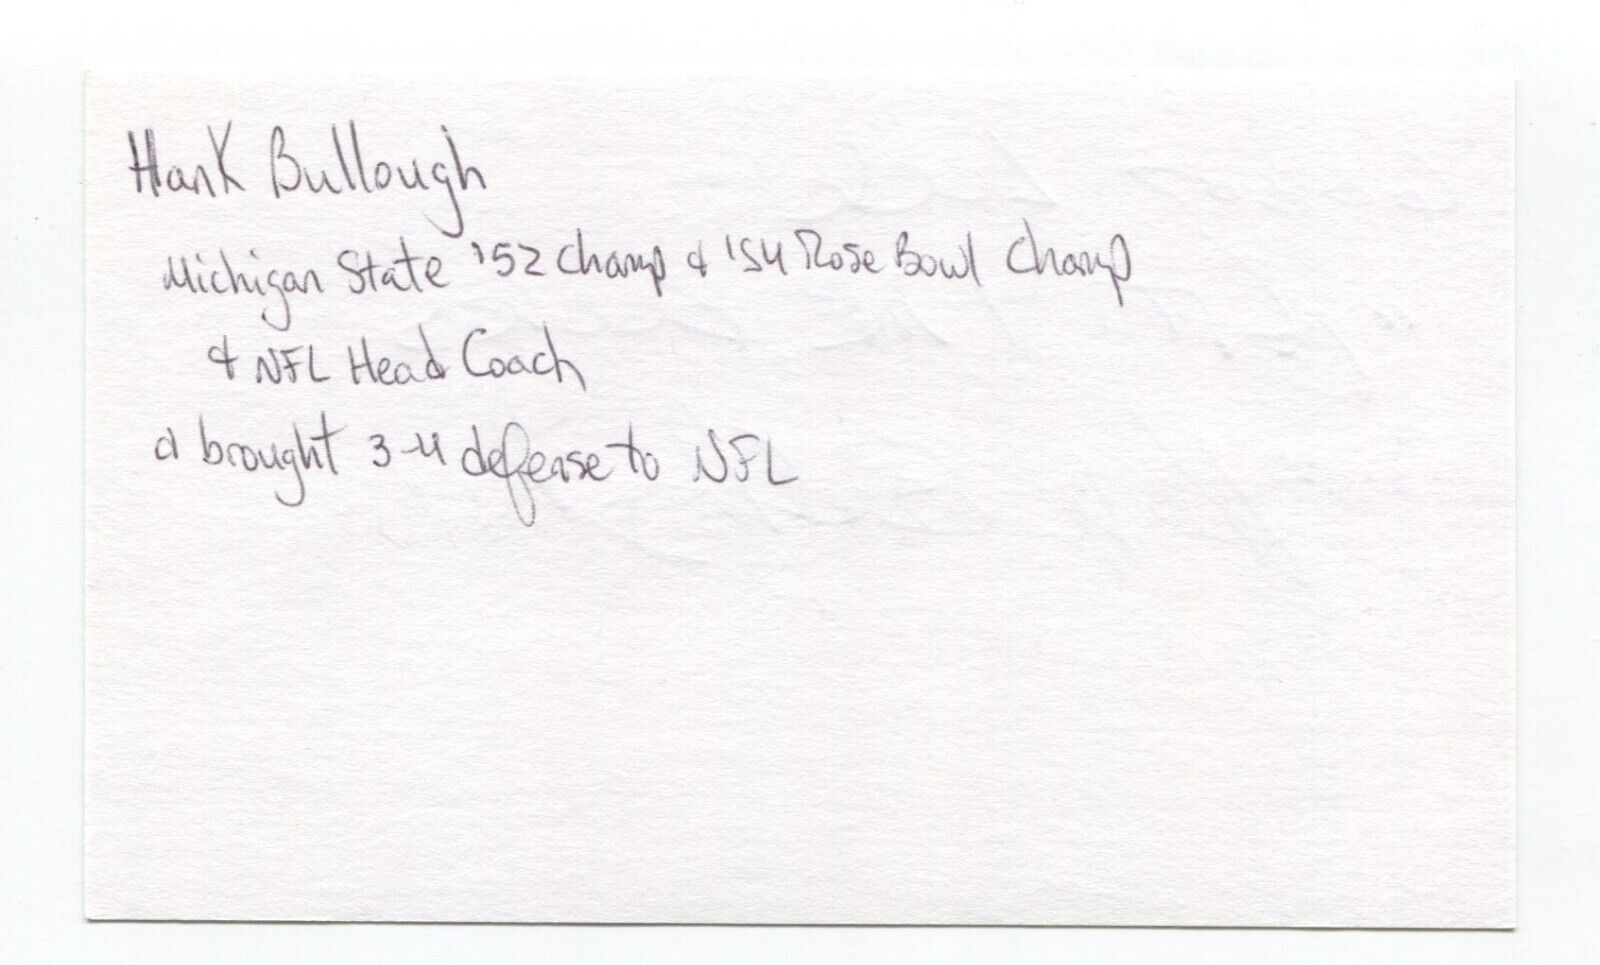 Hank Bullough
Michigan State '52 Champ & '54 Rose Bowl Champ
& NFL Head Coach
& brought 3-4 defense to NFL